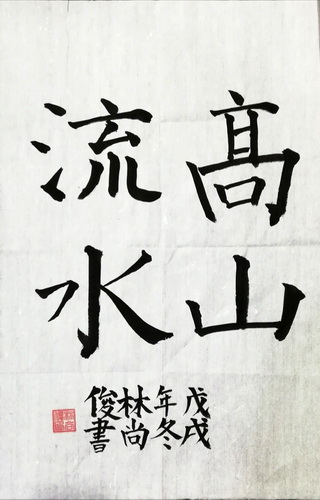 髙山
流水
戊戌
年冬
林尚
俊書